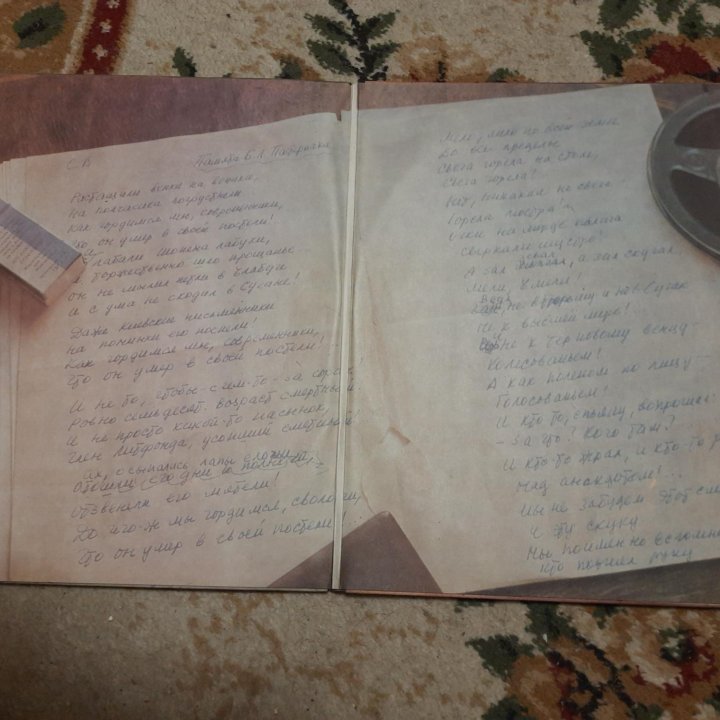 С. В Памяти Б. Л. Пастернака
Разобрали венки на веники,
На полчасика погрустнели..
Как гордимся мы, современники,
Что он умер в своей постели!
И лабали Шопена лабухи,
И торжественно шло прощанье..
Он не мылил петли в Елабуге
И с ума не сходил в Сучане!
Даже киевские письменники
на поминки его поспели!
Как гордимся мы, современники,
Что он умер в своей постели!..
И не то, чтобы с чем-то-за сорок!
Ровно семьдесят - возраст смертный.
И не просто какой-то пасынок,
Член Литфонда, усопший сметный!
Ах, осыпались лапы ёлочьи,
Отзвенели его метели!
До чего ж мы гордимся, сволочи,
Что он умер в своей постели!
Мело, мело по всей земле
Во все пределы
Свеча горела на столе,
Свеча горела!
Нет, никакая не свеча
Горела люстра!
Очки на морде палача
Сверкали шустро!
А зал зевал, а зал скучал
Мели, Емеля!
Ведь не в тюрьму и не в Сучан
Не к высшей мере!..
И не к терновому венцу -
Колесованьем!
А как поленом по лицу -
Голосованьем!
И кто-то, спьяну, вопрошал:
- За что? Кого там?
И кто-то жрал, и кто-то
Над анекдотом!..
Мы не забудем этот
и эту скуку
Мы поименно
кто поднял руку